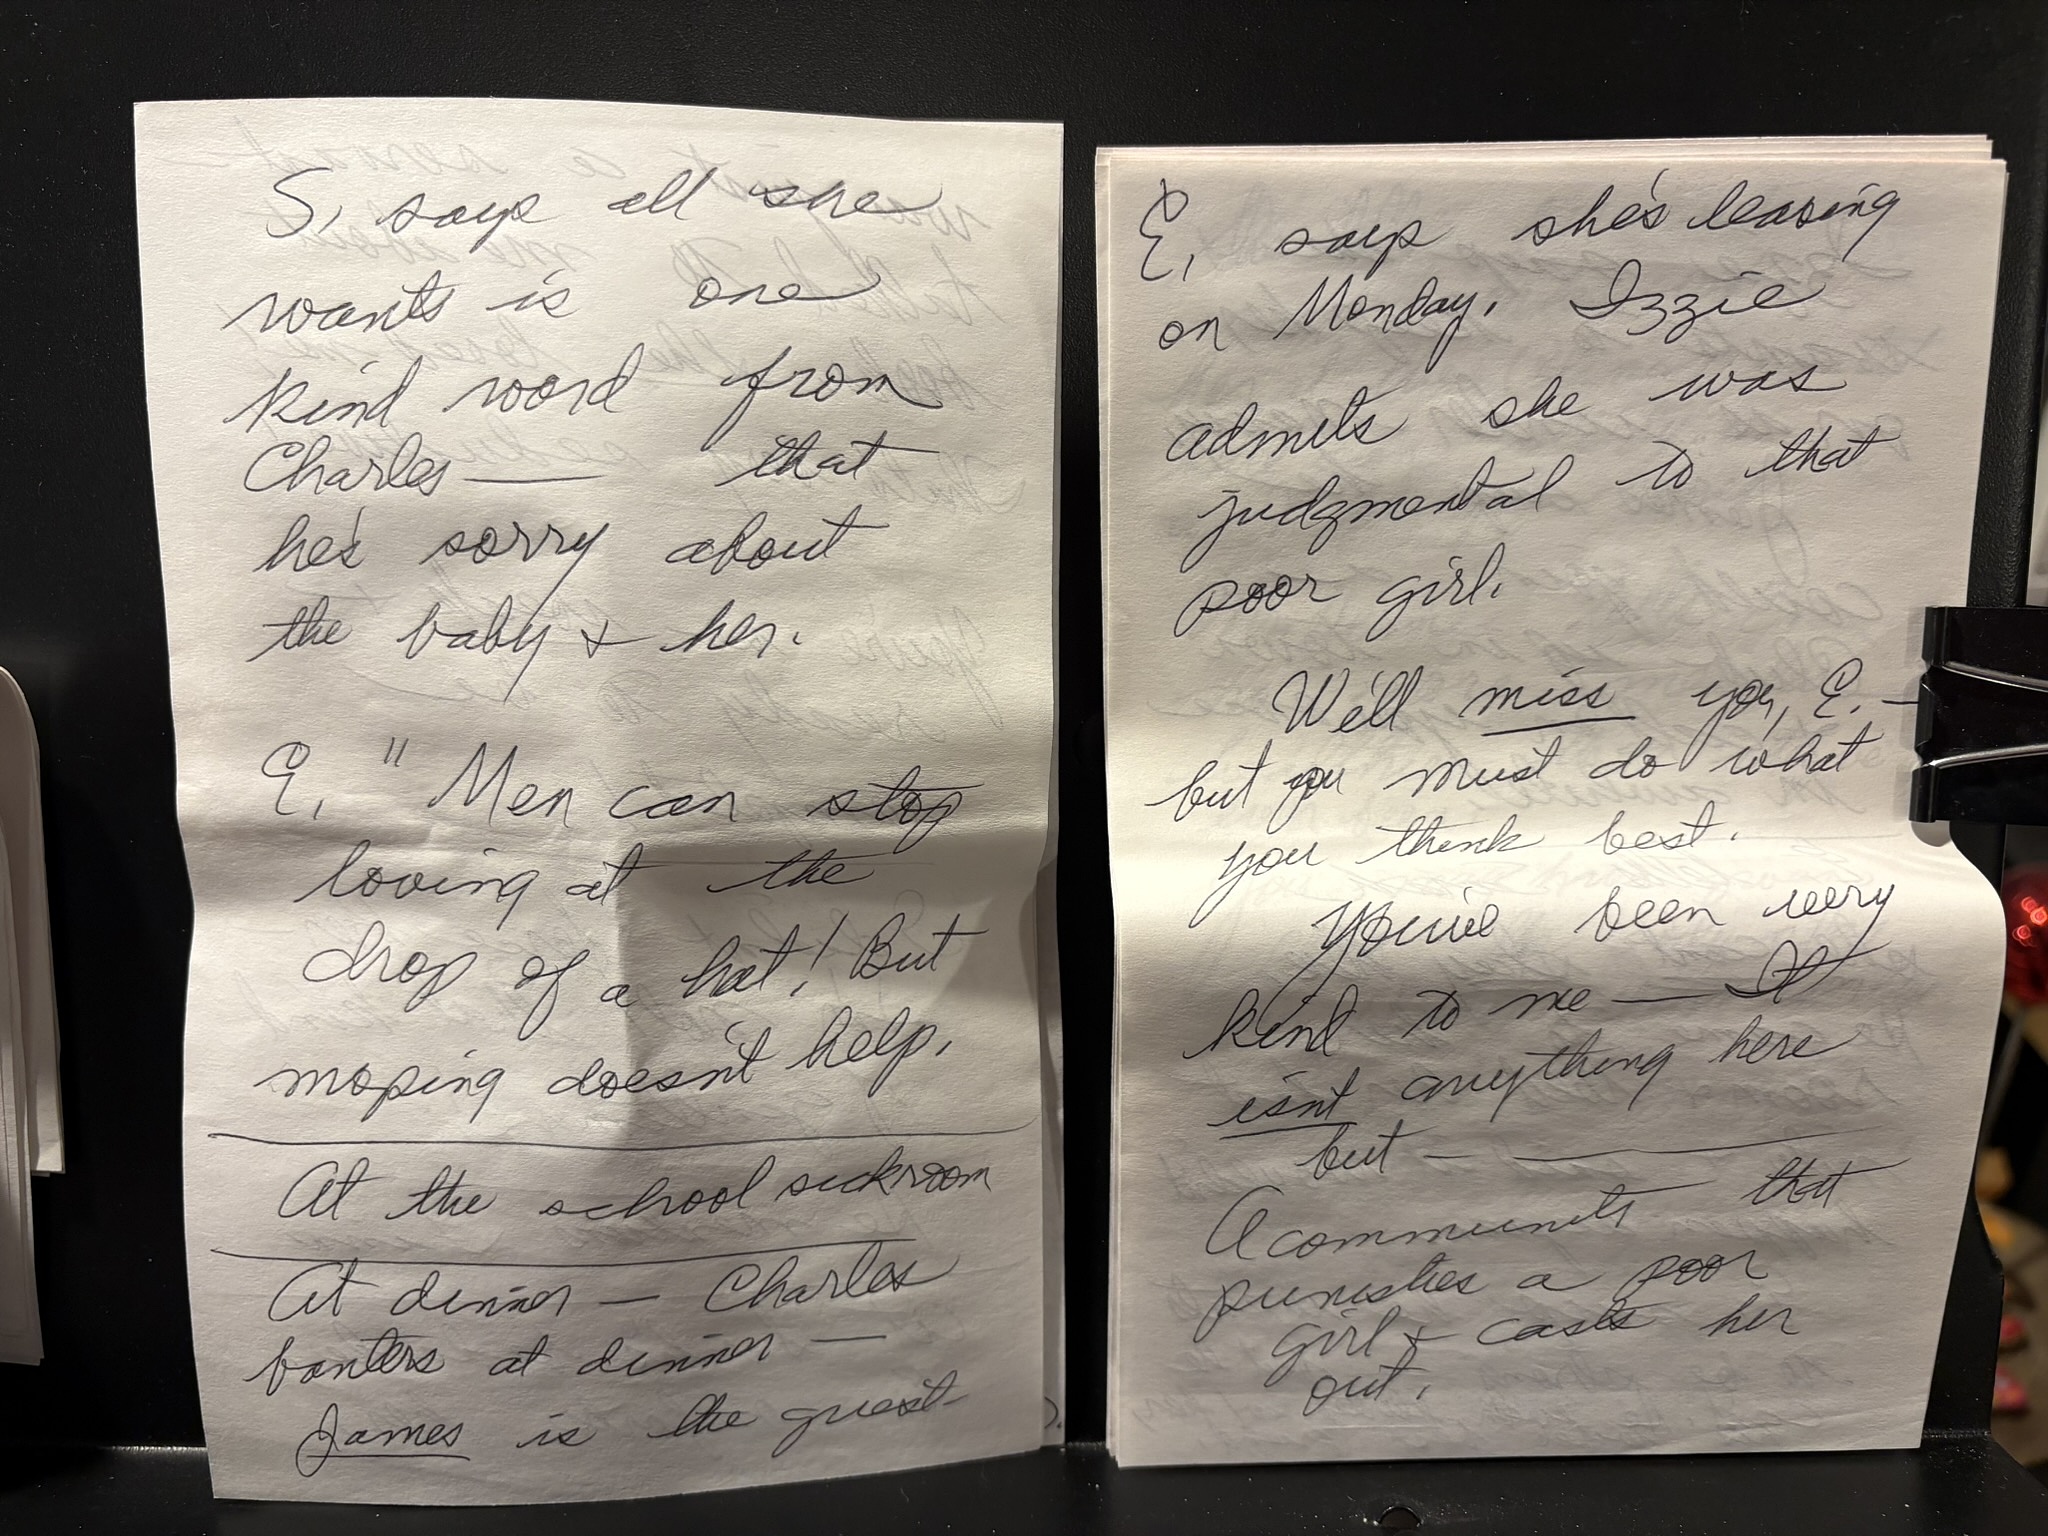 S, says all she
wants is one
kind word from
Charles — that
he's sorry about
the baby & her.
E, " Men can stop
loving at the
drop of a hat! But
moping doesn't help.
At the school sickroom
At dinner — Charles
banters at dinner —
James is the guest
E, says she's leaving
on Monday. Izzie
admits she was
judgmental to that
poor girl.
We'll miss you, E. —
but you must do what
you think best.
You've been very
kind to me — It
isn't anything here
but —
A community that
punishes a poor
girl & casts her
out.